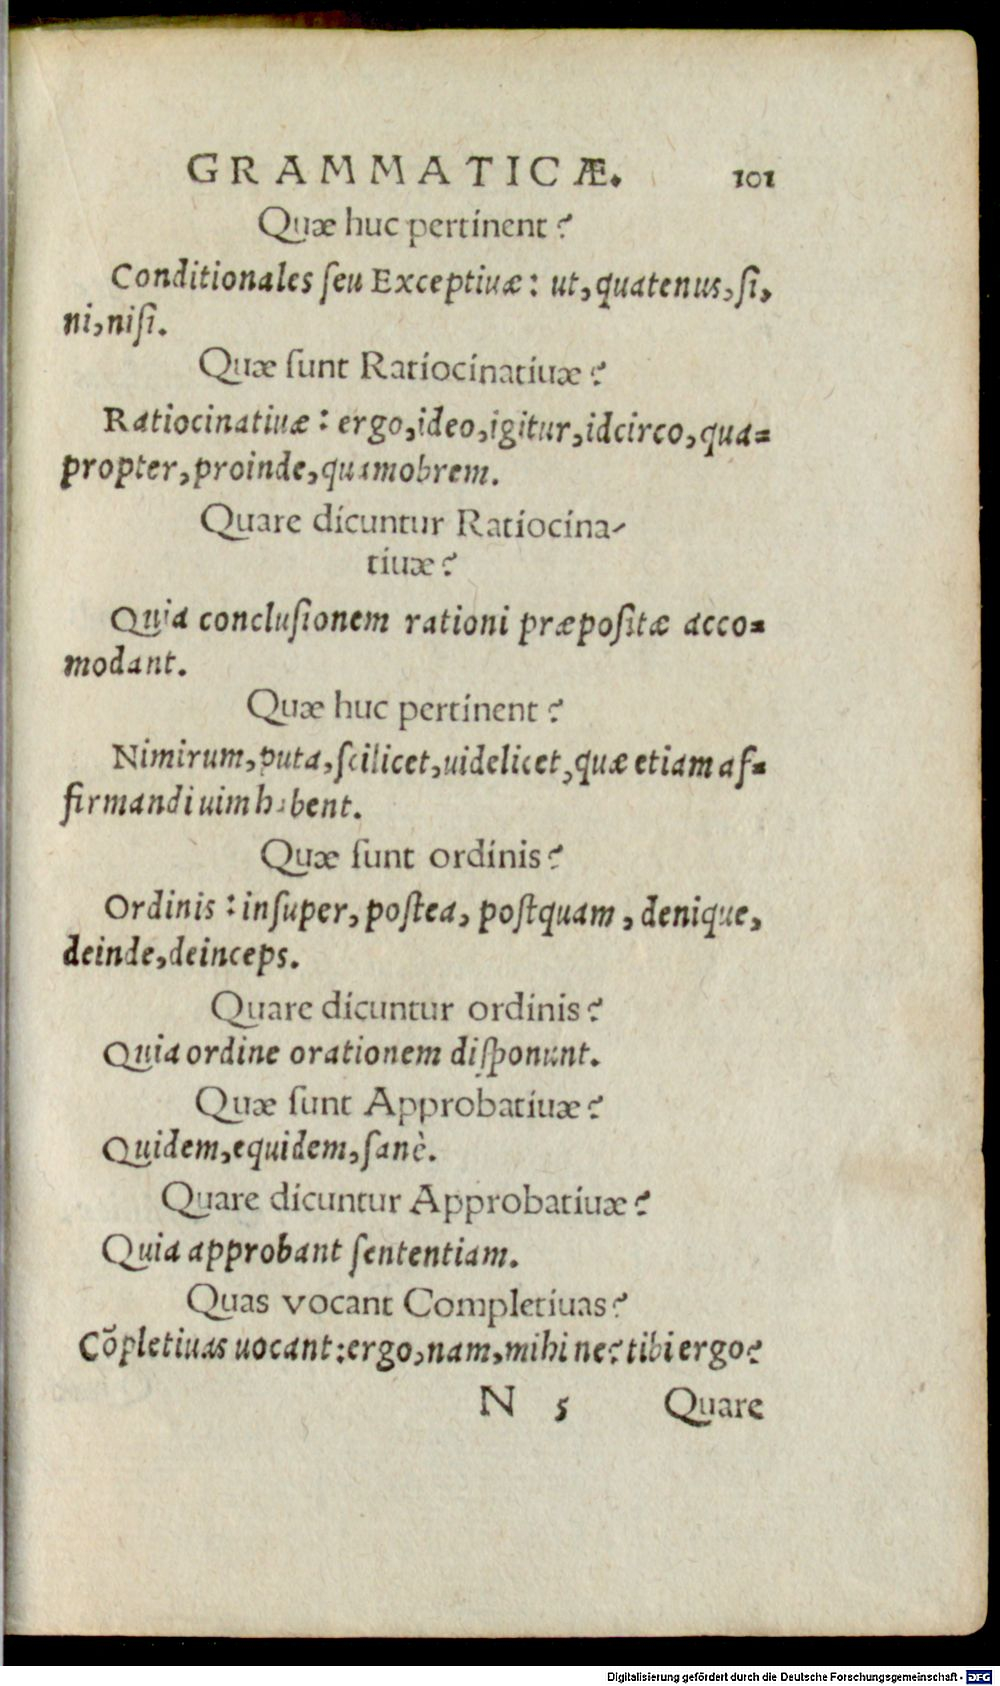 GRAMMATICÆ. 101
Quæ huc pertinent?
Conditionales ſeu Exceptiuæ: ut, quatenus, ſi,
ni, niſi.
Quæ ſunt Ratiocinatiuæ?
Ratiocinatiuæ: ergo, ideo, igitur, idcirco, qua-
propter, proinde, quamobrem.
Quare dicuntur Ratiocina-
tiuæ?
Quia concluſionem rationi præpoſitæ acco-
modant.
Quæ huc pertinent?
Nimirum, puta, ſcilicet, uidelicet, quæ etiam af-
firmandi uim habent.
Quæ ſunt ordinis?
Ordinis: inſuper, poſtea, poſtquam, denique,
deinde, deinceps.
Quare dicuntur ordinis?
Quia ordine orationem diſponunt.
Quæ ſunt Approbatiuæ?
Quidem, equidem, ſanè.
Quare dicuntur Approbatiuæ?
Quia approbant ſententiam.
Quas vocant Completiuas?
Cōpletiuas uocant: ergo, nam, mihi ne? tibi ergo?
N 5 Quare
Digitalisierung gefördert durch die Deutsche Forschungsgemeinschaft - DFG